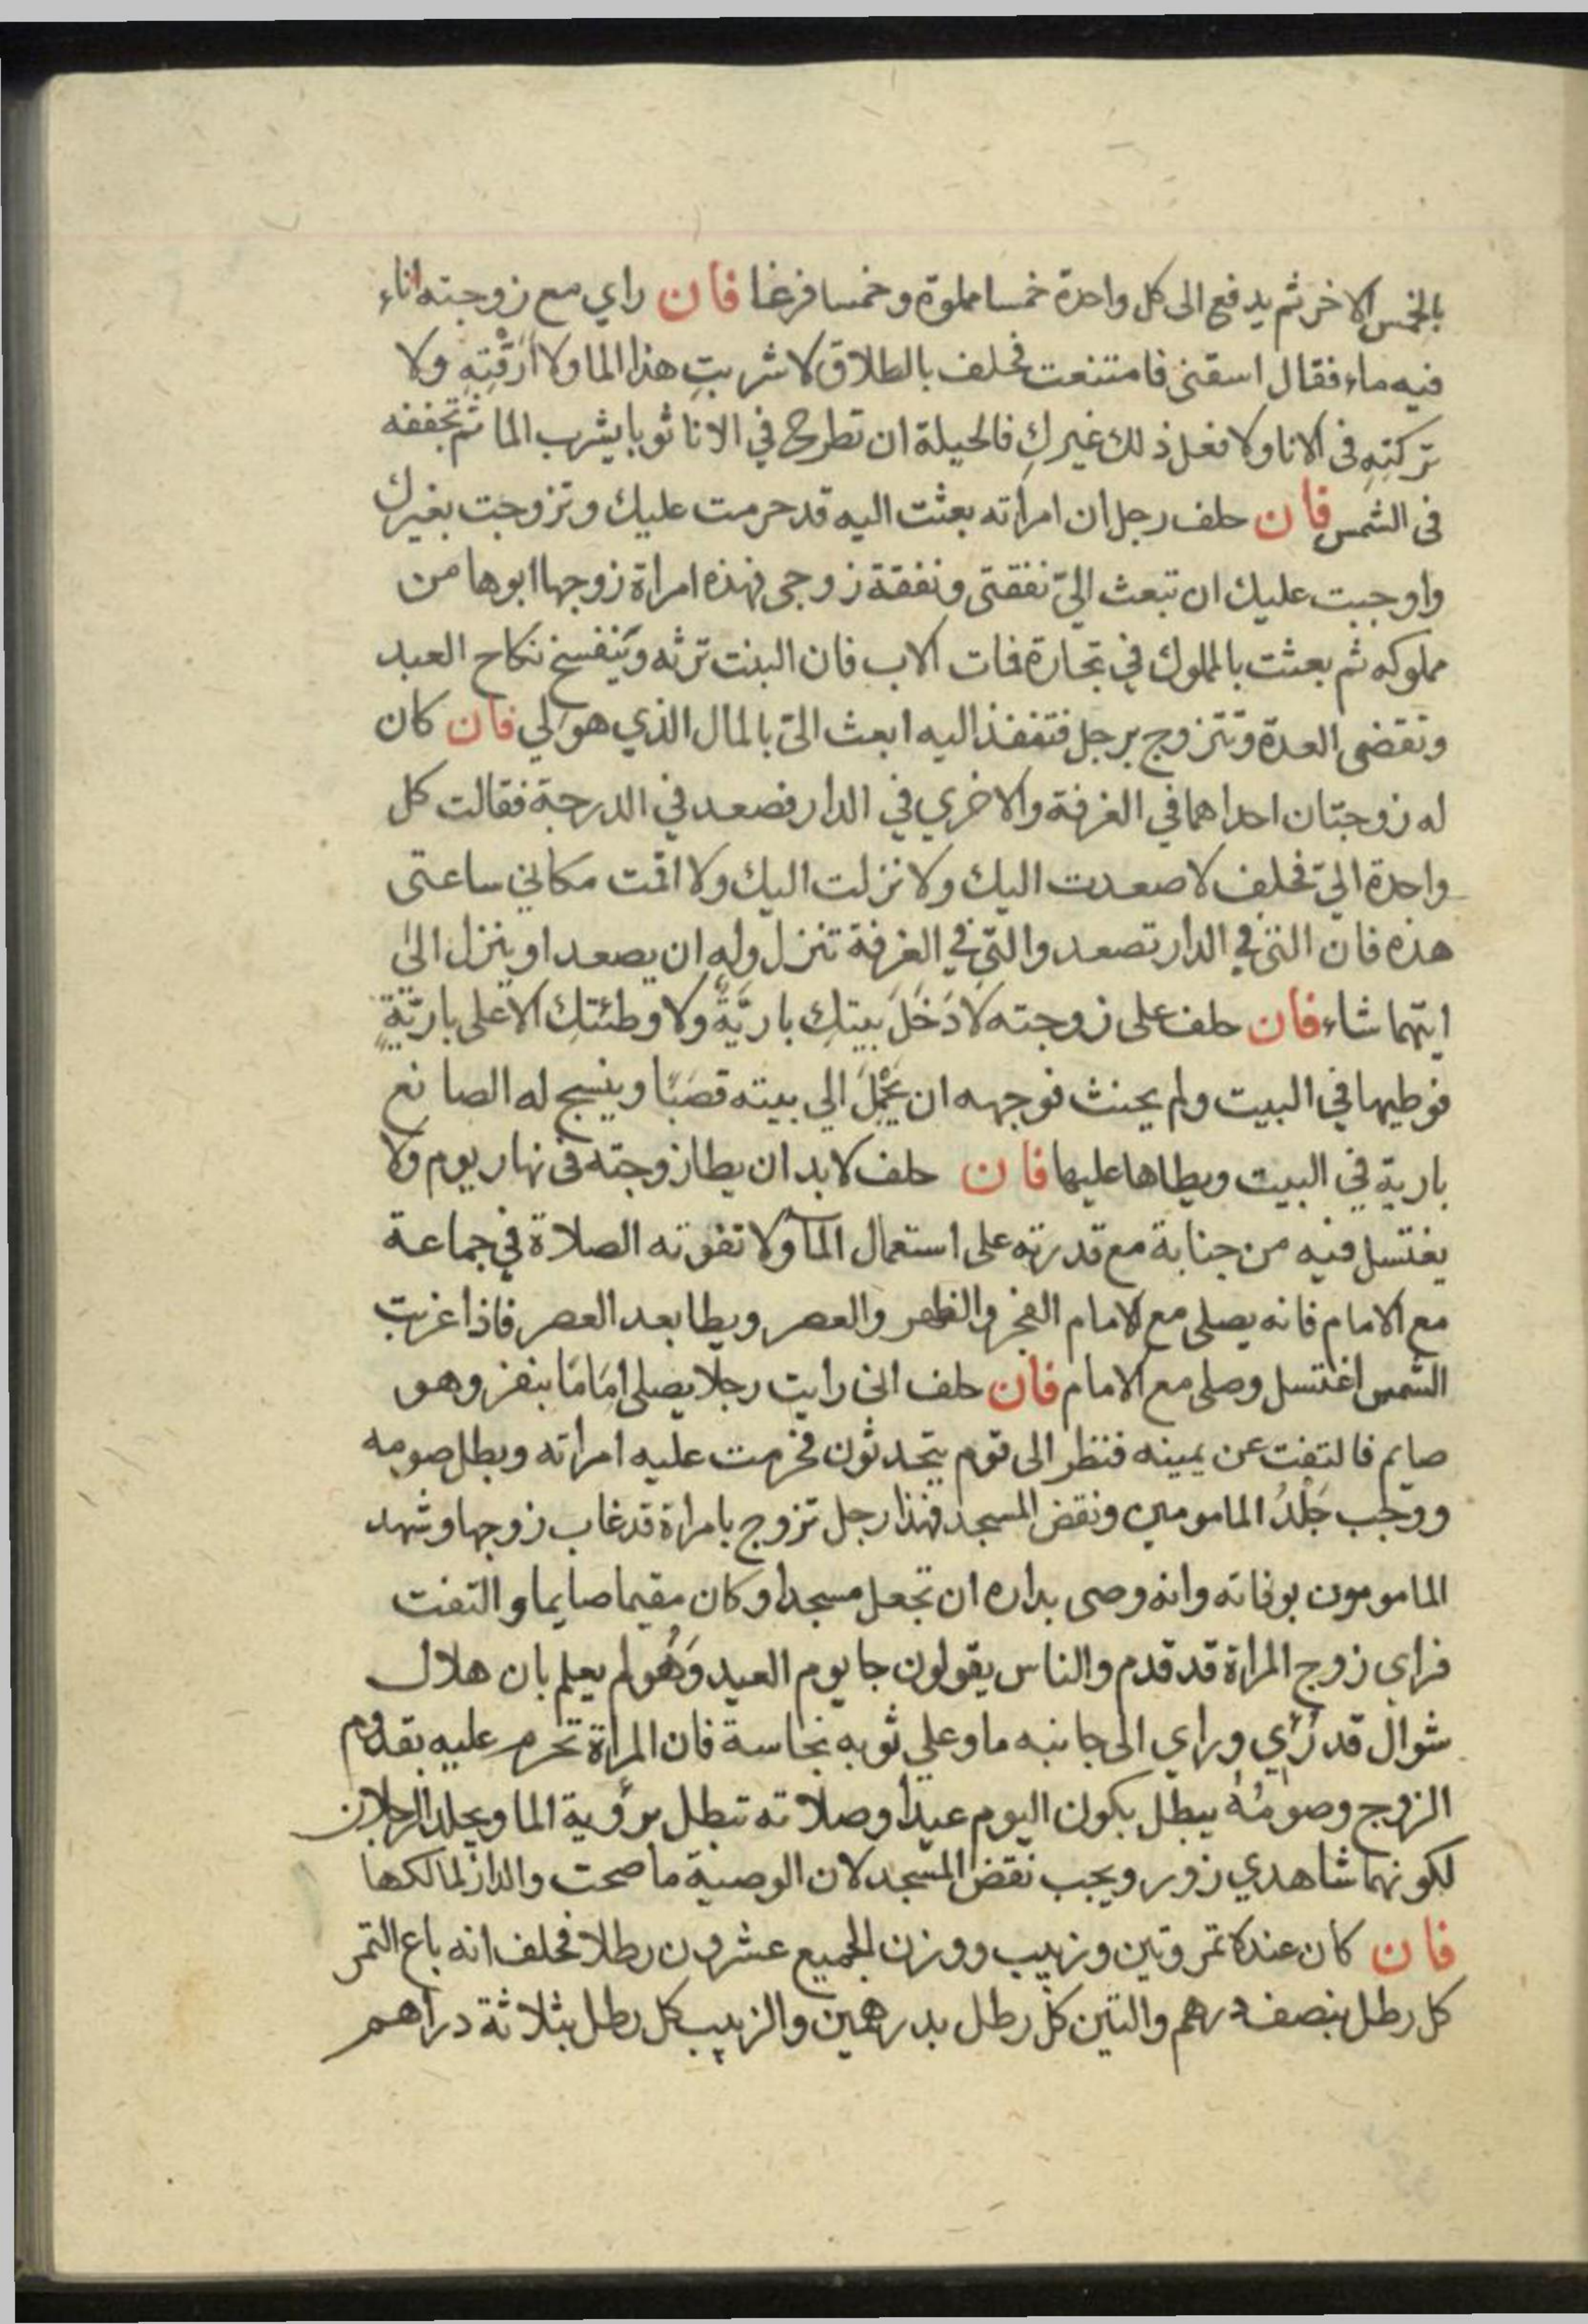 بالخمس الاخر ثم يدفع الى كل واحدة خمسا مملوة وخمسا فرغا فان راي مع زوجته اناء
فيه ماء فقال اسقنى فامتنعت فحلف بالطلاق لا شربتِ هذا الما ولا ارَقْتِهِ ولا
تركتِهِ فى الانا ولا فعل ذلك غيركِ فالحيلة ان تطرح في الانا ثوبا يشرب الما ثم تجففه
فى الشمس فان حلف رجل ان امراته بعثت اليه قد حرمت عليك وتزوجت بغيرك
واوجبت عليك ان تبعث اليّ نفقتى ونفقة زوجى فهذه امراة زوجها ابوها من
مملوكه ثم بعثت بالمملوك في تجارة فمات الاب فان البنت ترثه وينفسخ نكاح العبد
وتقضى العدة وتتزوج برجل فتنفذ اليه ابعث اليّ بالمال الذي هو لي فان كان
له زوجتان احداهما في الغرفة والاخري في الدار فصعد في الدرجة فقالت كل
واحدة اليّ فحلف لا صعدت اليك ولا نزلت اليك ولا اقمت مكاني ساعتى
هذه فان التى في الدار تصعد والتي في الغرفة تنزل وله ان يصعد او ينزل الىٰ
ايتهما شاء فان حلف على زوجته لا دَخَلَ بيتكِ باريَّةً ولا وطئتكِ الا على باريّةٍ
فوطيها في البيت ولم يحنث فوجهه ان يَحْمِلَ الي بيته قصَبًا وينسج له الصانع
بارية في البيت ويطاها عليها فان حلف لا بد ان يطا زوجته فى نهار يوم ولا
يغتسل فيه من جنابة مع قدرته على استعمال المآ ولا تفوته الصلاة في جماعة
مع الامام فانه يصلى مع الامام الفجر والظهر والعصر ويطا بعد العصر فاذا غربت
الشمس اغتسل وصلى مع الامام فان حلف انى رايت رجلا يصلى امَامًا بنفر وهو
صايم فالتفت عن يمينه فنظر الى قوم يتحدثون فحرمت عليه امراته وبطل صومه
ووجب جَلْدُ المامومين ونقض المسجد فهذا رجل تزوج بامراة قد غاب زوجها وشهد
المامومون بوفاته وانه وصى بداره ان تجعل مسجدا وكان مقيما صايما والتفت
فراى زوج المراة قد قدم والناس يقولون جا يوم العيد وَهُو لم يعلم بان هلال
شوال قد رُأي وراي الى جانبه ما وعلي ثوبه نجاسة فان المراة تحرم عليه بقدوم
الزوج وصومُهُ يبطل بكون اليوم عيدًا وصلاته تبطل برؤية الما ويجلد الرجلان
لكونهما شاهدي زور ويجب نقض المسجد لان الوصية ما صحت والدار لمالكها
فان كان عنده تمر وتين وزبيب ووزن الجميع عشرون رطلا فحلف انه باع التمر
كل رطل بنصف درهم والتين كل رطل بدرهمين والزبيب كل رطل بثلاثة دراهم